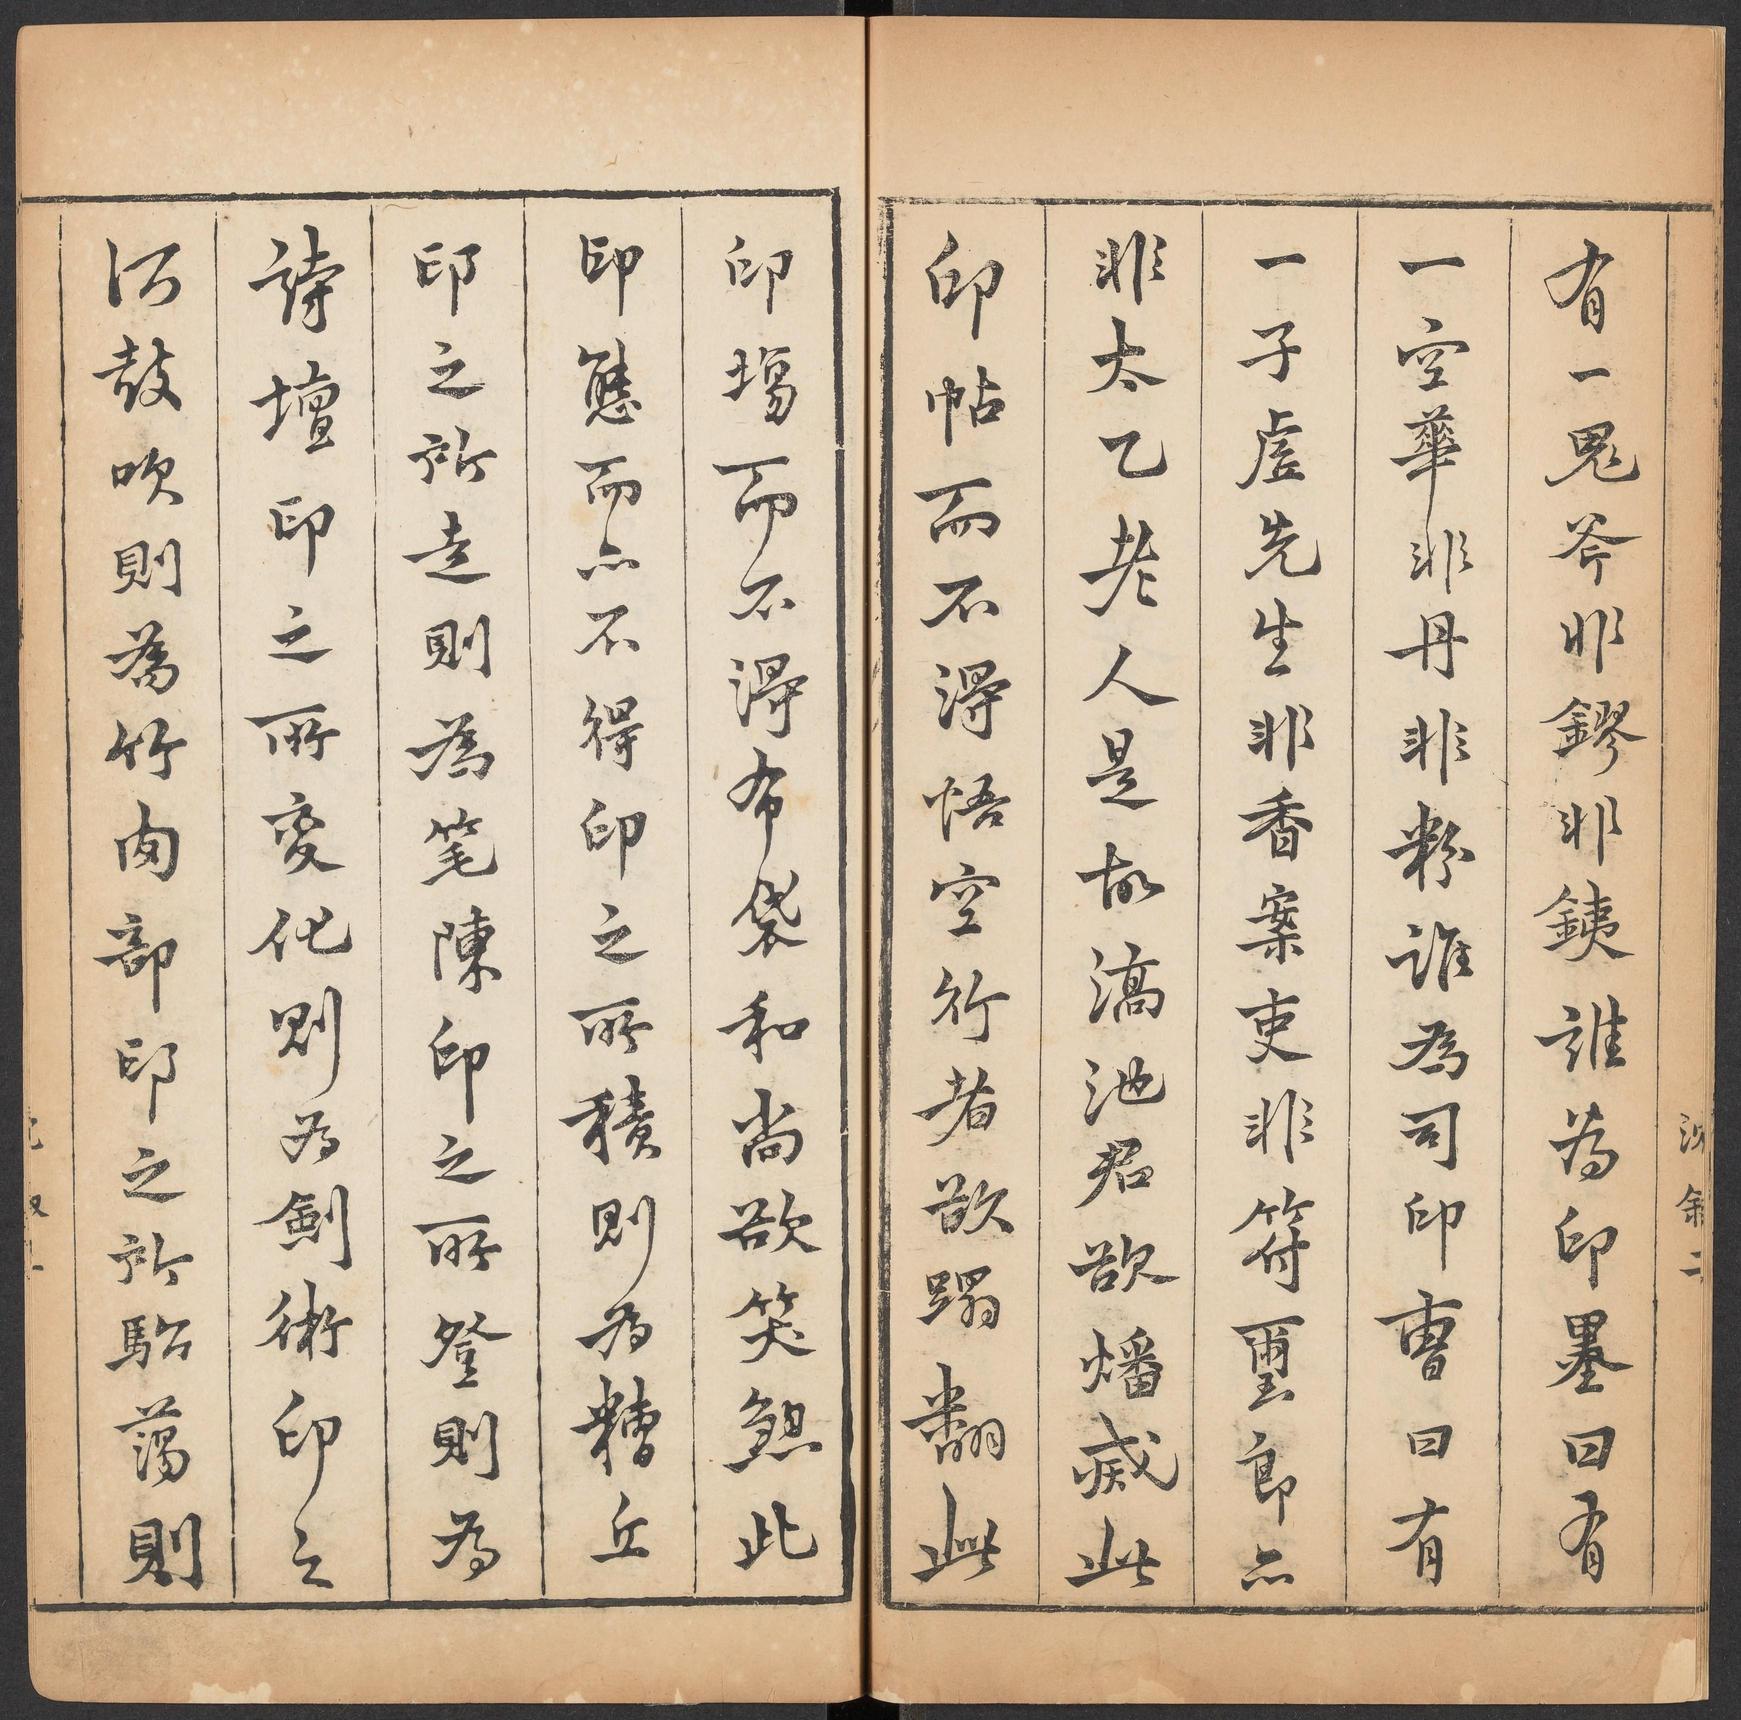 有一鬼斧非鏐非銕誰為印墨曰有
一空華非丹非粉誰為司印曹曰有
一子虛先生非香案吏非符璽郎亦
非太乙老人是故滈池君欲燔滅此
印帖而不淂悟空行者欲蹋翻此
印場而不淂布袋和尚欲笑煞此
印態而亦不得印之所積則為糟丘
印之所走則為筆陳印之所登則為
詩壇印之所變化則為劍術印之
所鼓吹則為竹肉部印之所駘蕩則